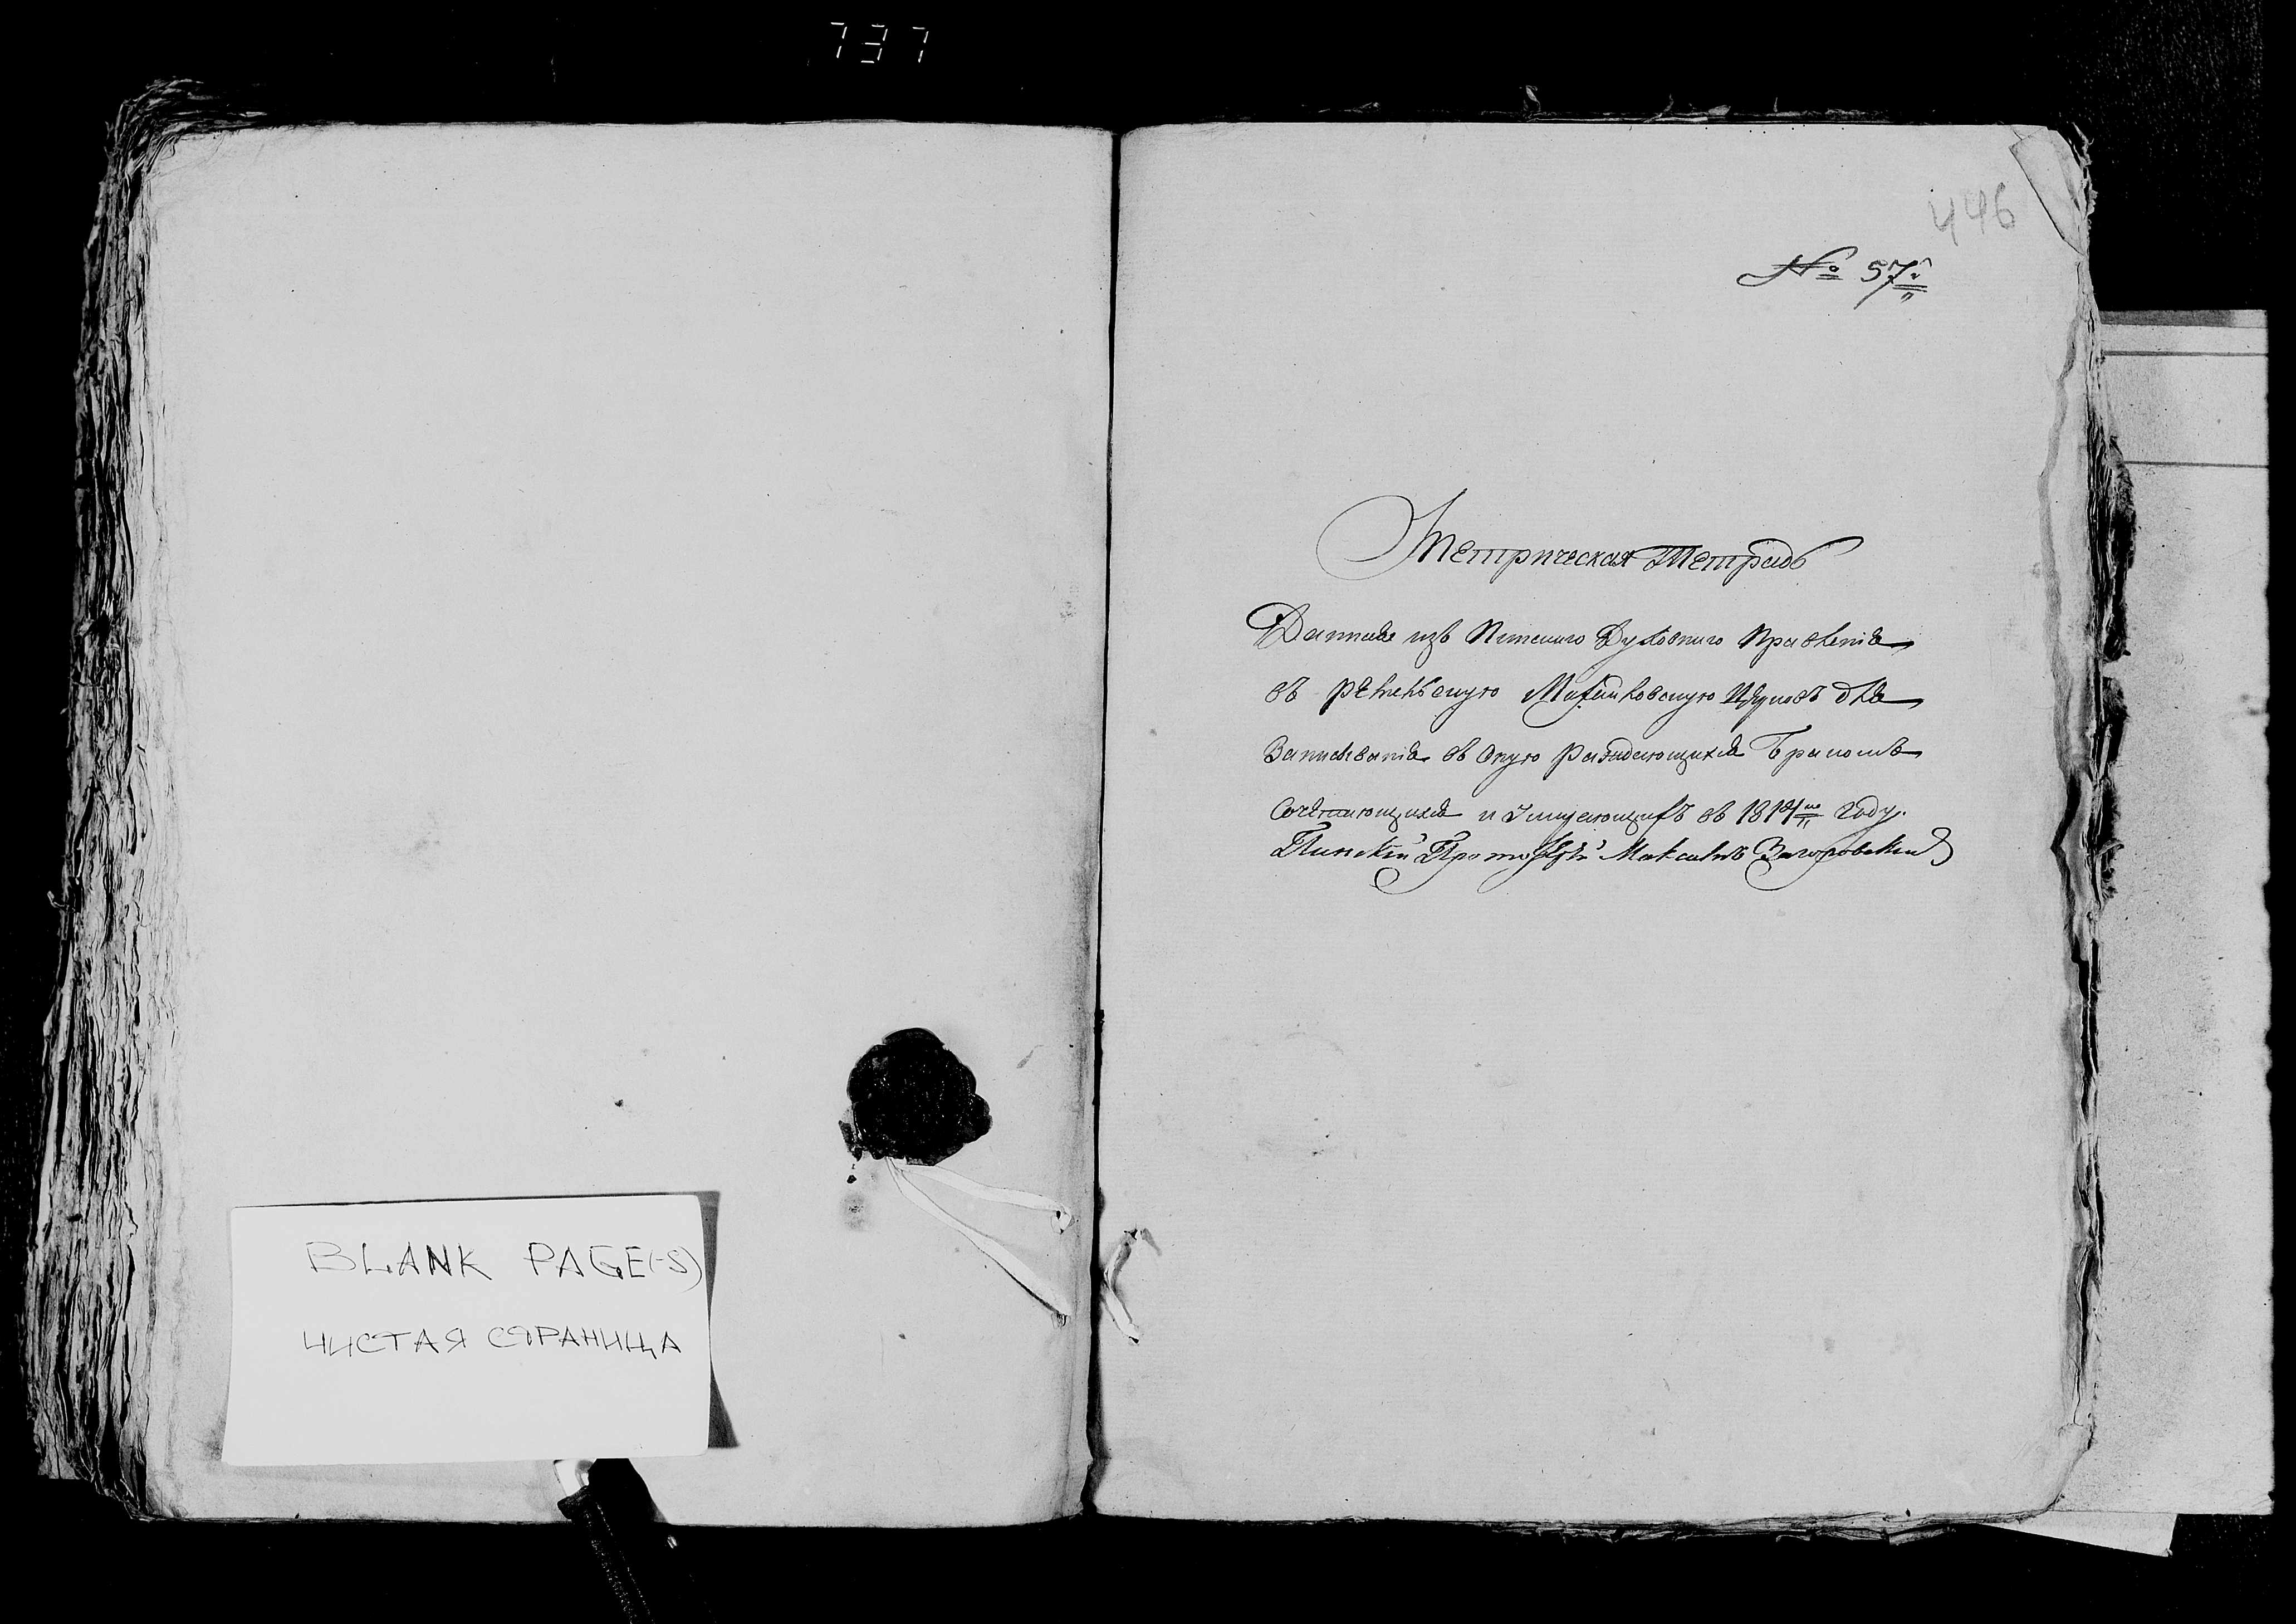 737
446
№ 57й
Метрическая Тетрадь
Данная изъ Пинскаго Духовнаго Правленія
въ Михайловскую Церковь для
Записыванія въ оную Раждающихся Бракомъ
Сочетающихся и Умирающихъ въ 1814мъ году.
Пинскій Протоіерей Максимъ Загоровскій
BLANK PAGE(-S)
ЧИСТАЯ СТРАНИЦА